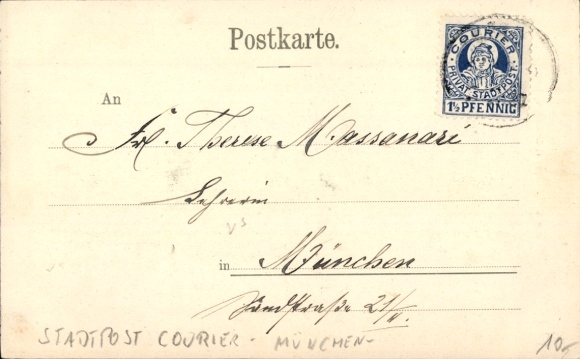 Postkarte.
COURIER
PRIVAT-STADTPOST.
1½ PFENNIG
An
Frl. Therese Massanari
Lehrerin
VS
in München
21/II.
STADTPOST COURIER - MÜNCHEN-
10,-